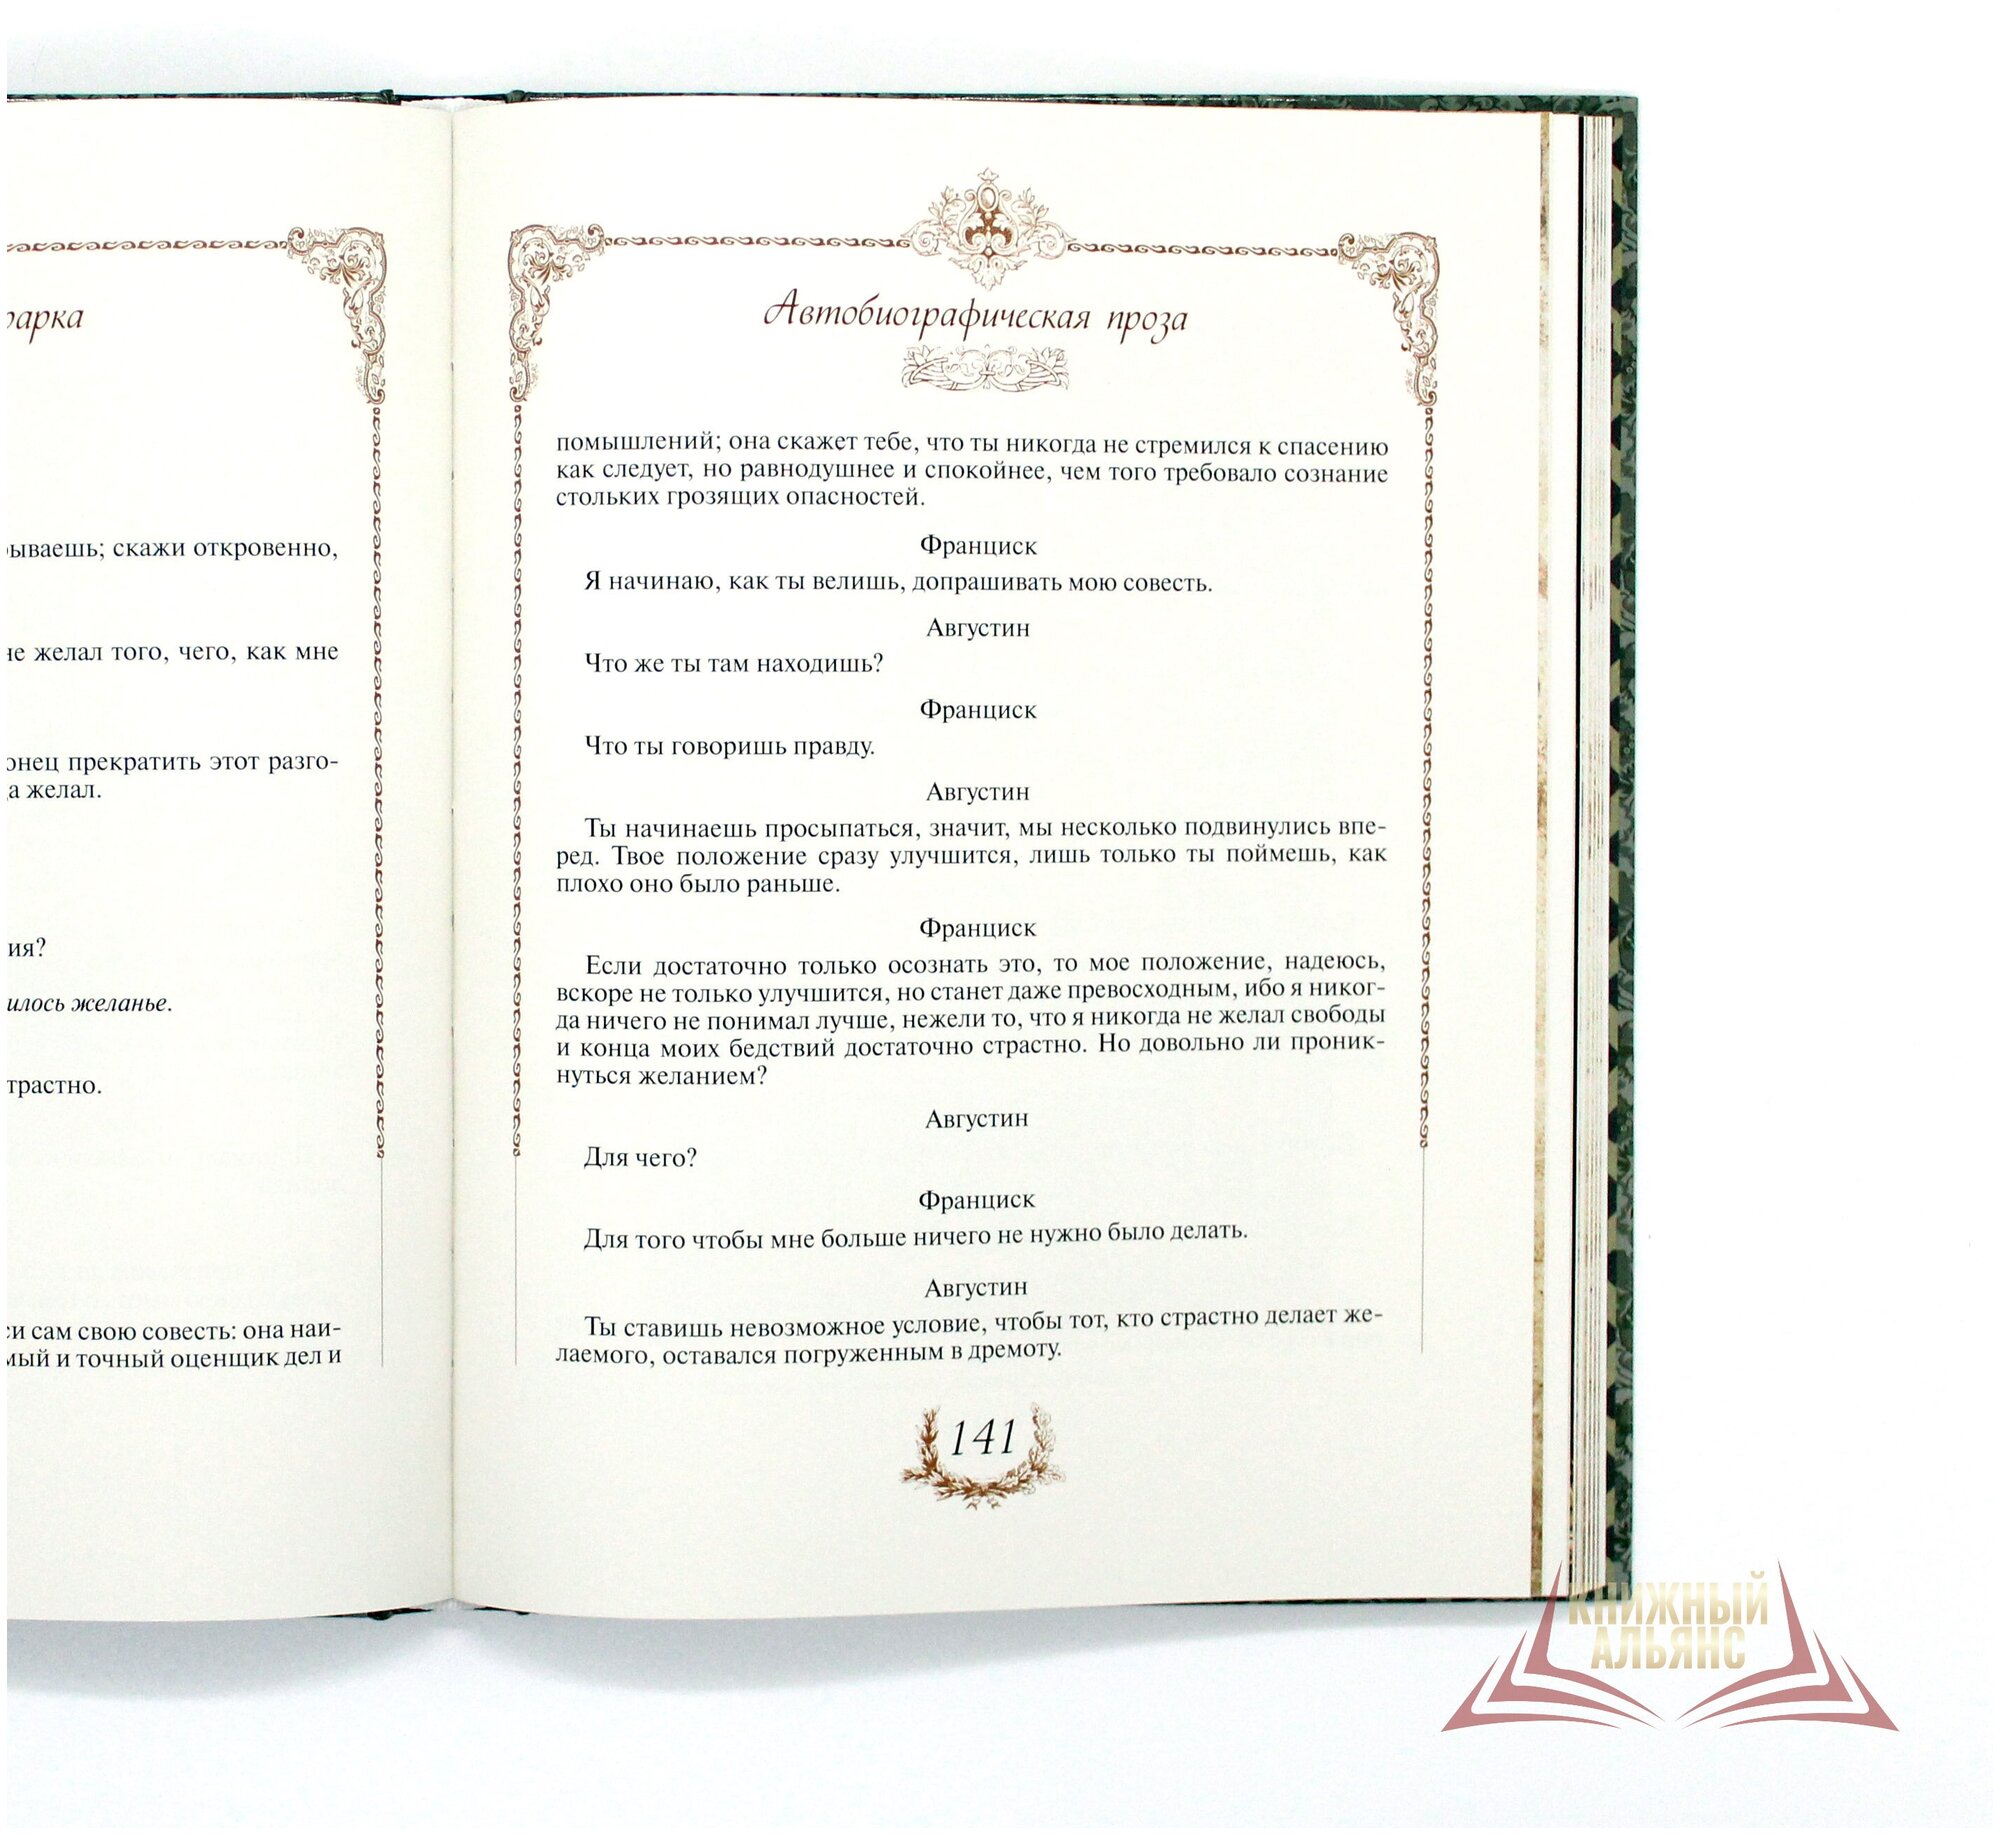 скажи откровенно,
желал того, чего, как мне
прекратить этот разго-
желал.
желанье.
сам свою совесть: она наи-
и точный оценщик дел и
Автобиографическая проза
помышлений; она скажет тебе, что ты никогда не стремился к спасению
как следует, но равнодушнее и спокойнее, чем того требовало сознание
стольких грозящих опасностей.
Франциск
Я начинаю, как ты велишь, допрашивать мою совесть.
Августин
Что же ты там находишь?
Франциск
Что ты говоришь правду.
Августин
Ты начинаешь просыпаться, значит, мы несколько подвинулись впе-
ред. Твое положение сразу улучшится, лишь только ты поймешь, как
плохо оно было раньше.
Франциск
Если достаточно только осознать это, то мое положение, надеюсь,
вскоре не только улучшится, но станет даже превосходным, ибо я никог-
да ничего не понимал лучше, нежели то, что я никогда не желал свободы
и конца моих бедствий достаточно страстно. Но довольно ли проник-
нуться желанием?
Августин
Для чего?
Франциск
Для того чтобы мне больше ничего не нужно было делать.
Августин
Ты ставишь невозможное условие, чтобы тот, кто страстно делает же-
лаемого, оставался погруженным в дремоту.
141
КНИЖНЫЙ
АЛЬЯНС